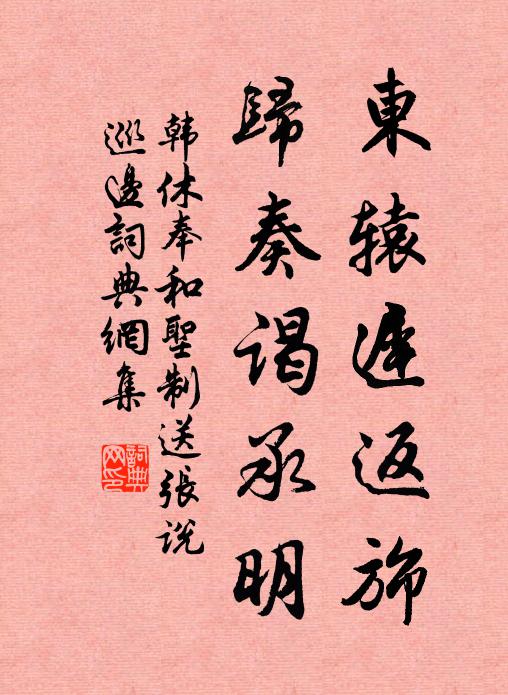 東辕遲返旆
歸奏谒承明
韩休奉和聖制送張说
巡邊詞典網集
詞典网印